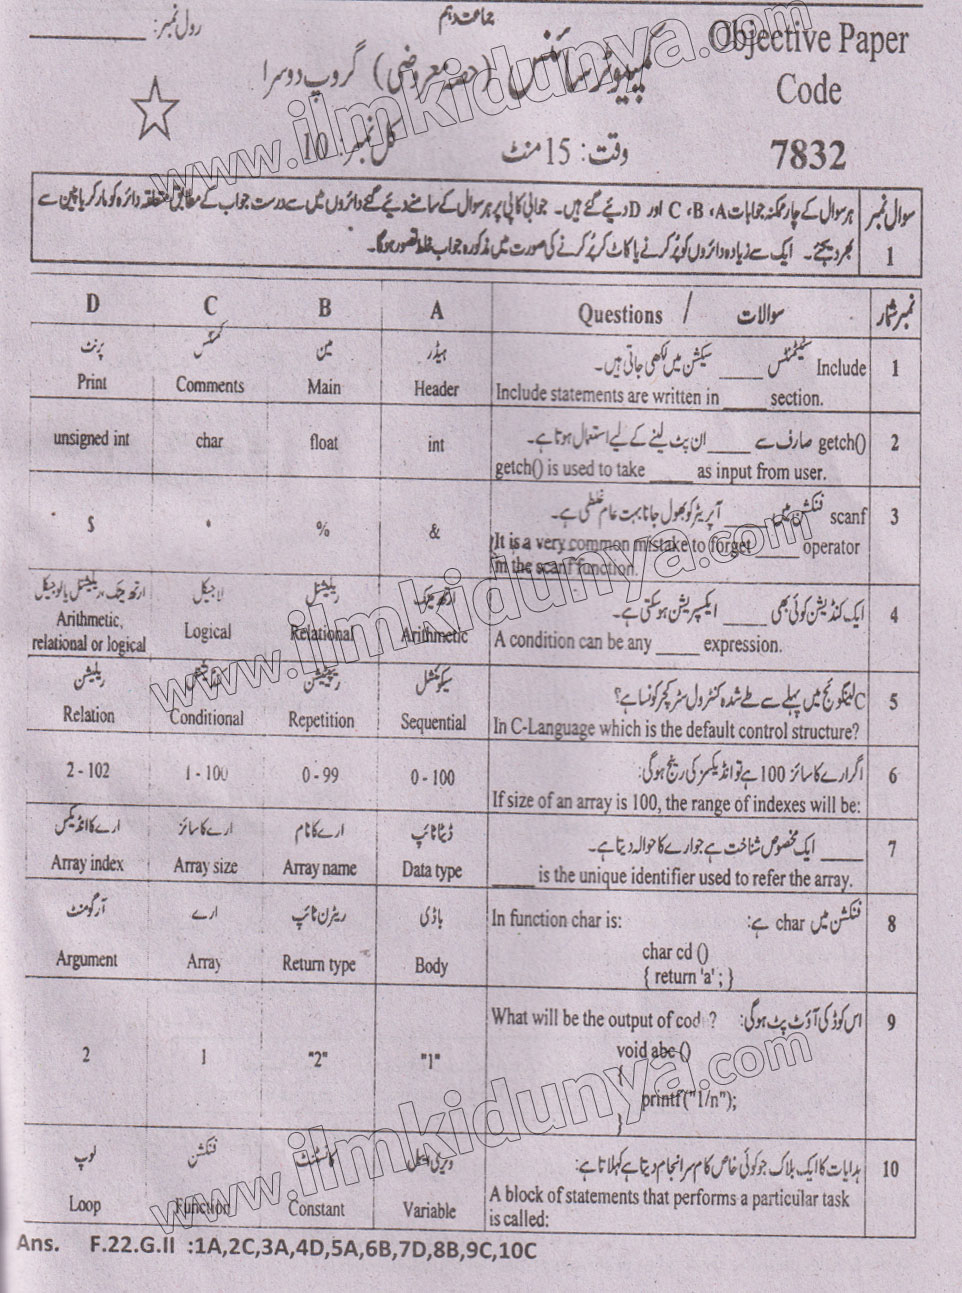 جماعت دہم
رول نمبر:
Objective Paper
Code
7832
کمپیوٹر سائنس (حصہ معروضی) گروپ دوسرا
وقت: 15 منٹ
کل نمبر: 10
سوال نمبر 1
ہر سوال کے چار ممکنہ جوابات A، B، C اور D دیئے گئے ہیں۔ جوابی کاپی پر ہر سوال کے سامنے دیئے گئے دائروں میں سے درست جواب کے مطابق متعلقہ دائرہ کو مارکر یا پین سے
بھر دیجئے۔ ایک سے زیادہ دائروں کو پُر کرنے یا کاٹ کر پُر کرنے کی صورت میں مذکورہ جواب غلط تصور ہوگا۔
D C B A Questions / سوالات نمبر شمار
1
Include سٹیٹمنٹس _____ سیکشن میں لکھی جاتی ہیں۔
Include statements are written in _____ section.
پرنٹ کمنٹس مین ہیڈر
Print Comments Main Header
2
getch() صارف سے _____ ان پٹ لینے کے لیے استعمال ہوتا ہے۔
getch() is used to take _____ as input from user.
unsigned int char float int
3
scanf فنکشن میں _____ آپریٹر کو بھول جانا بہت عام غلطی ہے۔
It is a very common mistake to forget _____ operator
in the scanf function.
% &
4
ایک کنڈیشن کوئی بھی _____ ایکسپریشن ہو سکتی ہے۔
A condition can be any _____ expression.
ارتھمیٹک، ریلیشنل یا لوجیکل لاجیکل ریلیشنل ارتھمیٹک
Arithmetic,
relational or logical Logical Relational Arithmetic
5
C لینگوئج میں پہلے سے طے شدہ کنٹرول سٹرکچر کونسا ہے؟
In C-Language which is the default control structure?
ریلیشن کنڈیشنل ریپیٹیشن سیکوئنشل
Relation Conditional Repetition Sequential
6
اگر ارے کا سائز 100 ہے تو انڈیکسز کی رینج ہوگی:
If size of an array is 100, the range of indexes will be:
2 - 102 1 - 100 0 - 99 0 - 100
7
_____ ایک مخصوص شناخت ہے جو ارے کا حوالہ دیتا ہے۔
_____ is the unique identifier used to refer the array.
ارے کا انڈیکس ارے کا سائز ارے کا نام ڈیٹا ٹائپ
Array index Array size Array name Data type
8
In function char is: فنکشن میں char ہے:
char cd ()
{ return 'a' ; }
آرگومنٹ ارے ریٹرن ٹائپ باڈی
Argument Array Return type Body
9
What will be the output of cod ? اس کوڈ کی آؤٹ پٹ ہوگی:
void abc ()
{
printf ("1/n");
}
2 1 "2" "1"
10
ہدایات کا ایک بلاک جو کوئی خاص کام سر انجام دیتا ہے کہلاتا ہے:
A block of statements that performs a particular task
is called:
لوپ فنکشن کانسٹنٹ ویری ایبل
Loop Function Constant Variable
Ans. F.22.G.II :1A,2C,3A,4D,5A,6B,7D,8B,9C,10C
www.ilmkidunya.com
www.ilmkidunya.com
www.ilmkidunya.com